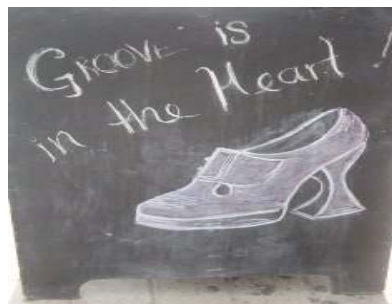 GROOVE is
in the Heart !